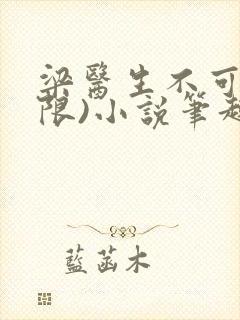 梁醫生不可
限)小說筆趣
藍菡木